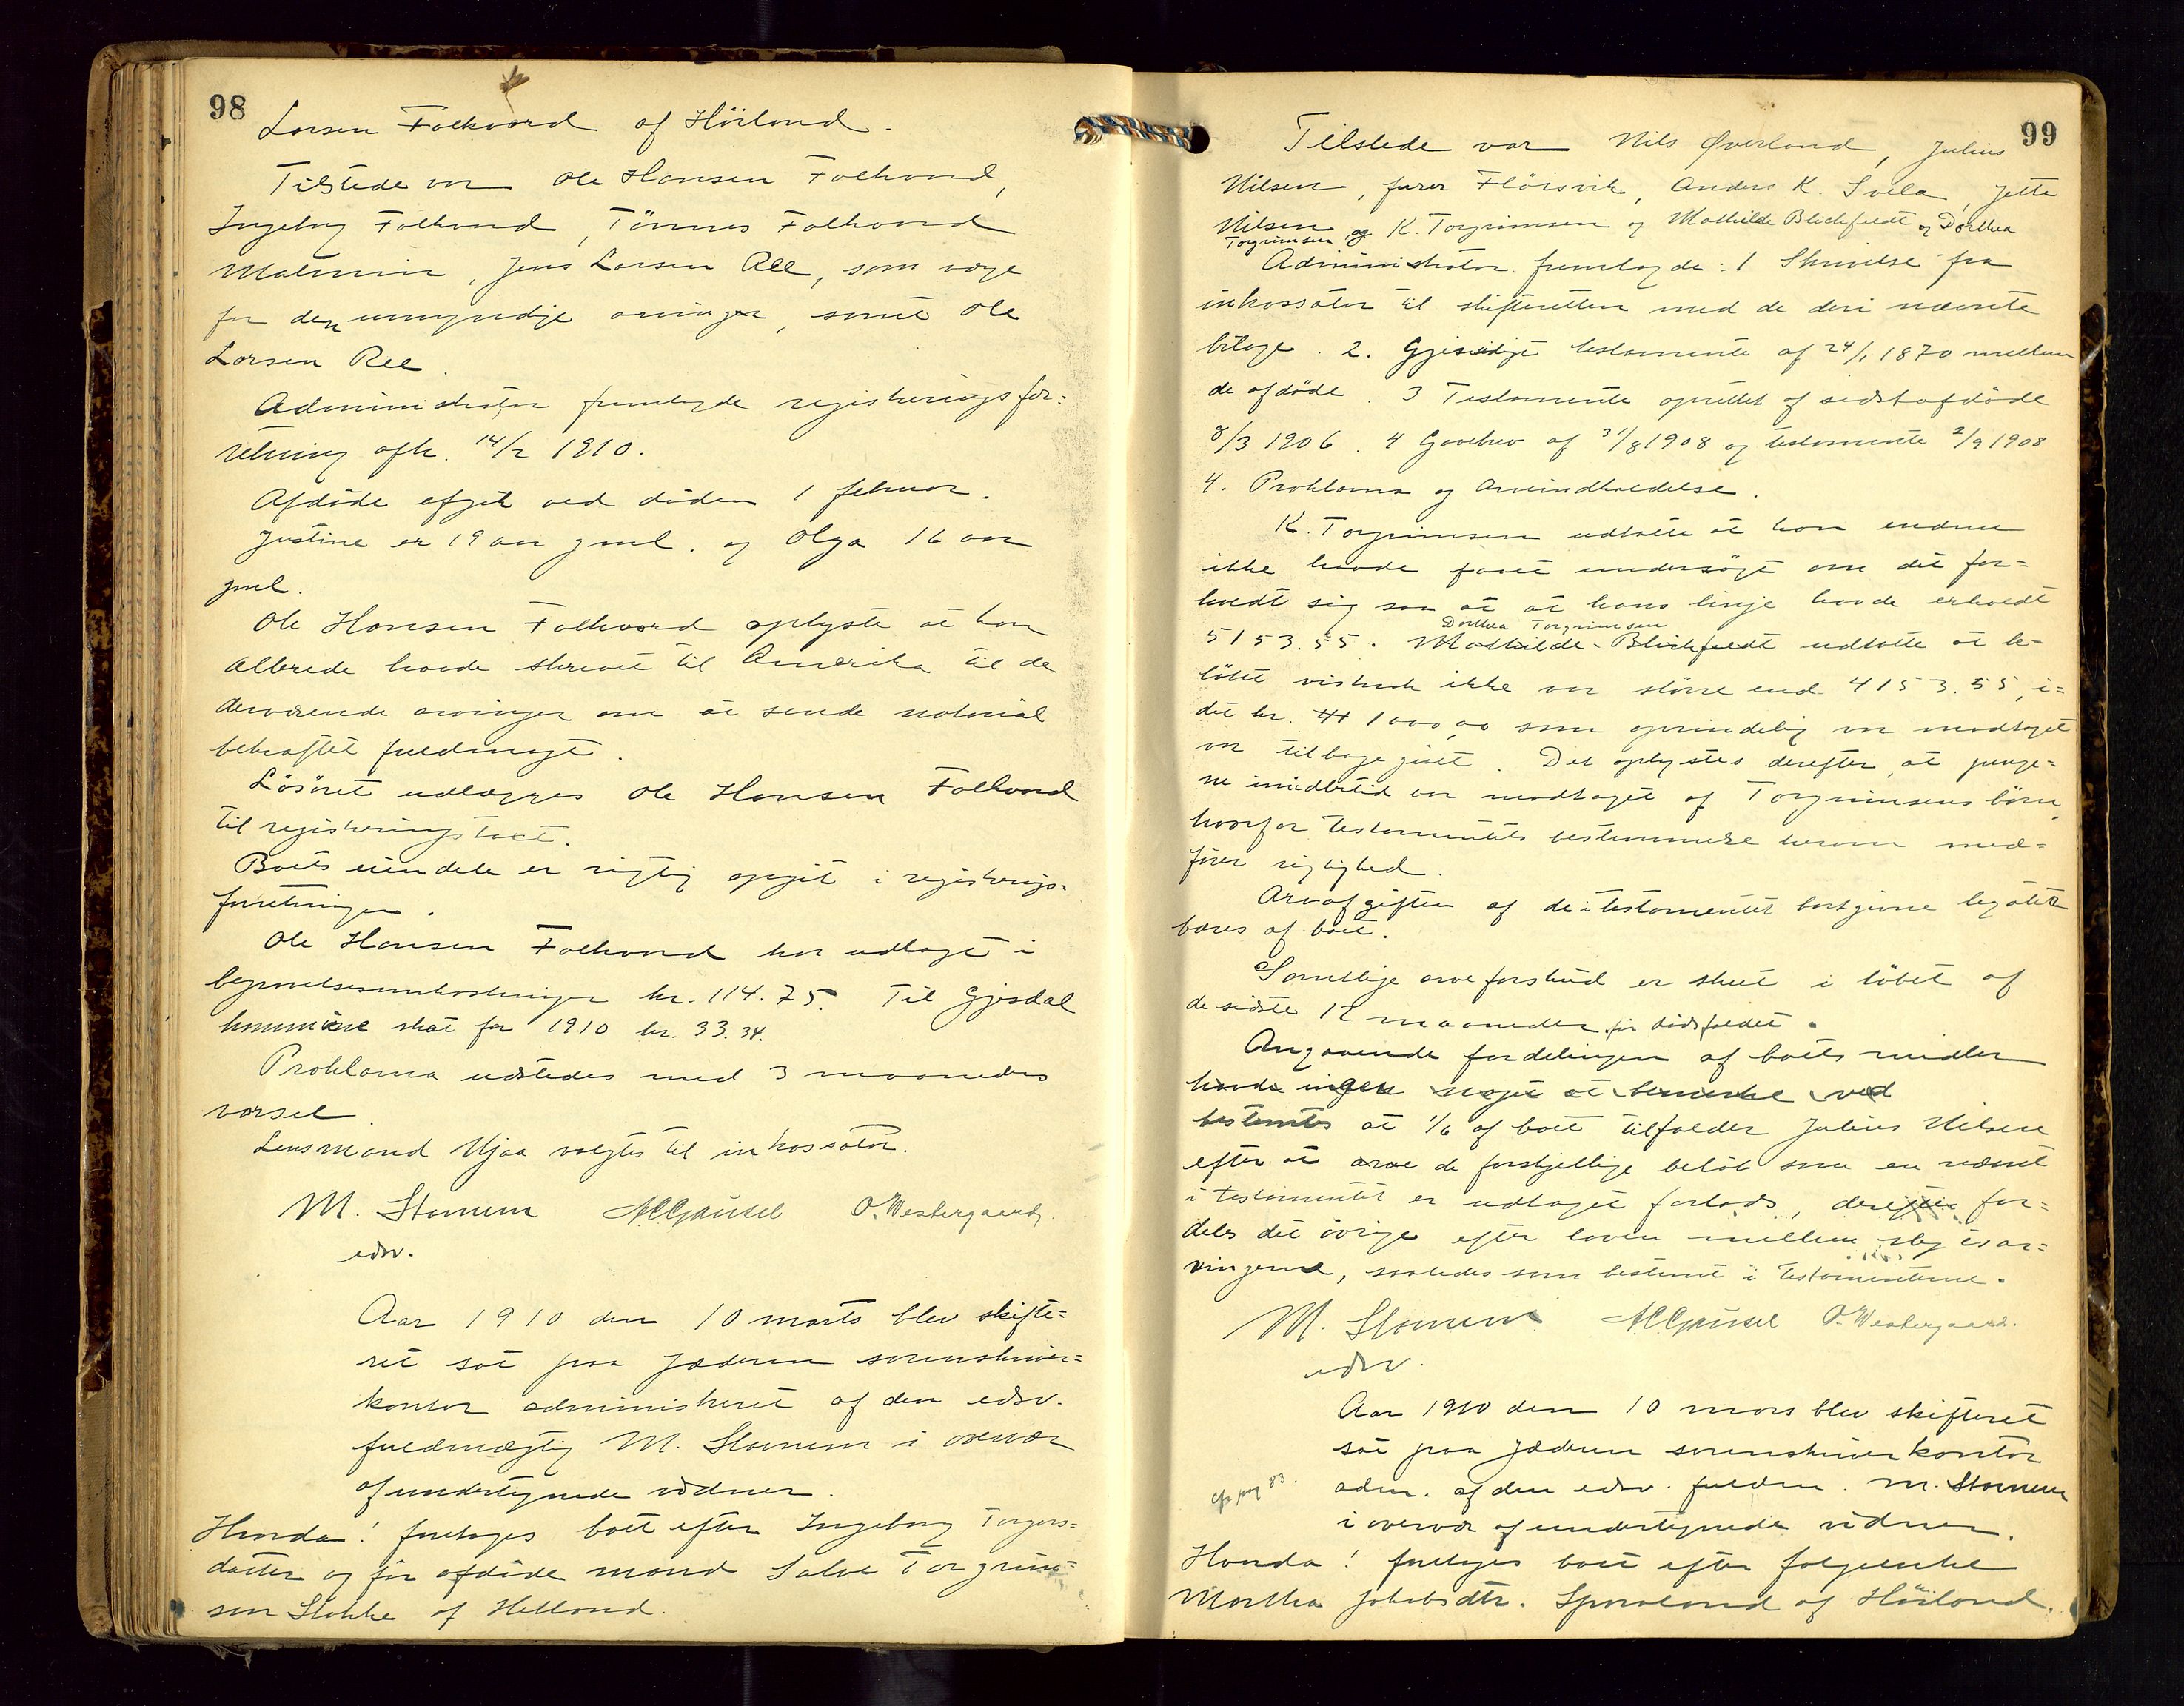 98
Larsen Folkvord af Höiland.
Tilstede var Ole Hansen Folkvord,
Ingeborg Folkvord, Tönnes Folkvord
Malmin, Jens Larsen Ree, som verge
for den umyndige arvinger, samt Ole
Larsen Ree.
Administrator fremlagde registreringsfor=
retning afh. 14/2 1910.
Afdöde afgik ved döden 1 februar.
Justine er 19 aar gml. og Olga 16 aar
gml.
Ole Hansen Folkvord oplyste at han
allerede havde skrevet til Amerika til de
derværende arvinger om at sende notorial
bekræftet fuldmagt.
Lösöret udlægges Ole Hansen Folkvord
til registreringstakst.
Boets eiendele er rigtig opgit i registrerings-
forretningen.
Ole Hansen Folkvord har udlagt i
begravelsesomkostninger kr. 114.75. Til Gjesdal
kommune skat for 1910 kr. 33.34.
Proklama udstedes med 3 maaneders
varsel.
Lensmand Njaa valgtes til inkassator.
M. Stomem AEGausel O. Westergaard.
edsv.
Aar 1910 den 10 marts blev skifte=
ret sat paa Jæderen sorenskriver=
kontor administreret af den edsv.
fuldmægtig M. Stomem i overvær
af undertegnede vidner.
Hvorda! foretoges boet efter Ingeborg Torgers=
datter og för afdöde mand Salve Torgrim=
sen Stokke af Helland.
99
Tilstede var Nils Øverland, Julius
Nilsen, furer Flörsvik, Anders K. Svela, Jette
Nilsen, og K. Torgrimsen og Mathilde Blichfeldt og Dorthea
Torgrimsen
Administrator fremlagde: 1 Skrivelse fra
inkassator til skifteretten med de deri nævnte
bilage. 2. Gjensidigt testamente af 24/1 1870 mellem
de afdöde. 3 Testamente oprettet af sidstafdöde
8/3 1906. 4 Gavebrev af 31/8 1908 og testamente 2/9 1908
4. Proklama og Arveindkaldelse.
K. Torgrimsen udtalte at han endnu
ikke havde faaet undersögt om det for=
holdt sig saa at at hans linje havde erholdt
Dorthea Torgrimsen
5153.55. Mathilde Blichfeldt udtalte at be-
löbet vistnok ikke var större end 4153.55, i=
det kr. 1000,00 som oprindelig var modtaget
var tilbagegivet. Det oplystes derefter, at penge=
ne imidlertid var modtaget af Torgrimsens börn,
hvorfor testamentets bestemmelse herom med=
förer rigtighed.
Arveafgiften af de i testamentet bortgivne legater
bæres af boet.
Samtlige arveforskud er skeet i löbet af
de sidste 12 maaneder för dödsfaldet.
Angaaende fordelingen af boets midler
havde ingen noget at bemerke ved
bestemtes at 1/6 af boet tilfalder Julius Nilsen
efter at arve de forskjellige belöb som er nævnt
i testamentet er udtaget forlods, derefter for=
deles det övrige efter loven mellem slegtsar=
vingerne, saaledes som bestemt i testamenterne.
M. Stomem AEGausel O. Westergaard.
edsv.
Aar 1910 den 10 mars blev skifteret
sat paa Jæderen sorenskriverkontor
cfr pag 83.
adm. af den edsv. fuldm. M. Stomem
i overvær af undertegnede vidner.
Hvorda! foretoges boet efter folgeenke
Martha Jakobsdtr. Sporaland af Höiland.